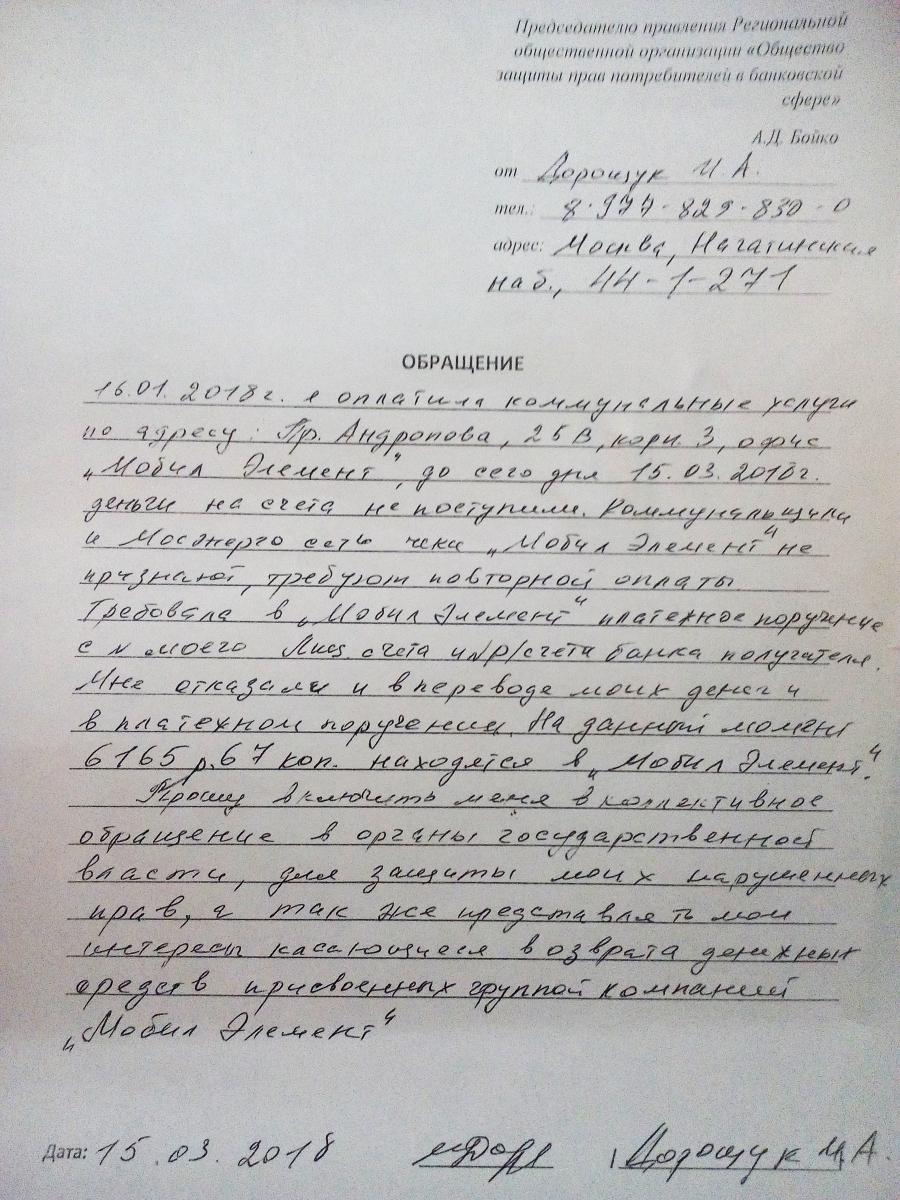 Председателю правления Региональной
общественной организации «Общество
защиты прав потребителей в банковской
сфере»
А.Д. Бойко
от Дорощук И. А.
тел.: 8-977-829-830-0
адрес: Москва, Нагатинская
наб., 44-1-271
ОБРАЩЕНИЕ
16.01.2018г. я оплатила коммунальные услуги
по адресу: Пр. Андропова, 25В, корп 3, офис
„Мобил Элемент“, до сего дня 15.03.2018г.
деньги на счета не поступили. Коммунальщики
и Мосэнерго сеть чеки „Мобил Элемент“ не
признают, требуют повторной оплаты.
Требовала в „Мобил Элемент“ платежное поручение
с N моего Лиц. счета и N Р/счета банка получателя.
Мне отказали и в переводе моих денег и
в платежном поручении. На данный момент
6165 р. 67 коп. находятся в „Мобил Элемент“.
Прошу включить меня в коллективное
обращение в органы государственной
власти, для защиты моих нарушенных
прав, а так же представлять мои
интересы касающиеся возврата денежных
средств присвоенных группой компаний
„Мобил Элемент“
Дата: 15.03.2018 Дорощук И.А.